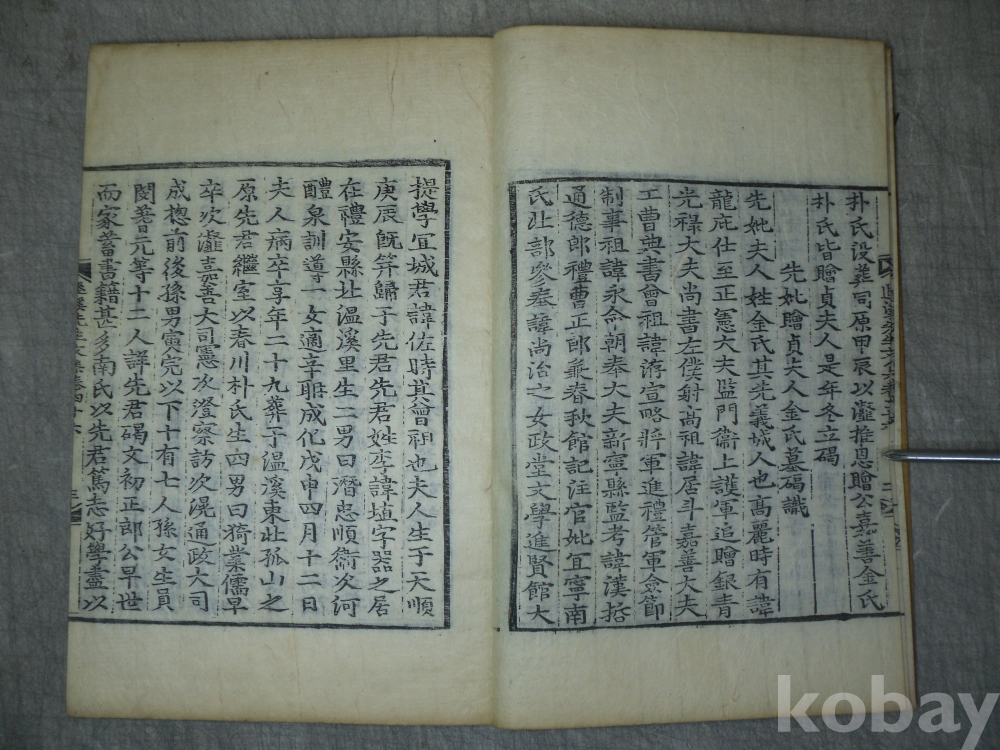 朴氏没葬同原甲辰以瀣推恩贈公嘉善金氏
朴氏皆贈貞夫人是年冬立碣
先妣贈貞夫人金氏墓碣識
先妣夫人姓金氏其先義城人也高麗時有諱
龍庇仕至正憲大夫監門衞上護軍追贈銀青
光祿大夫尚書左僕射高祖諱居斗嘉善大夫
工曹典書曾祖諱洊宣略將軍進禮管軍僉節
制事祖諱永命朝奉大夫新寧縣監考諱漢哲
通德郎禮曹正郎兼春秋館記注官妣宜寧南
氏吏部參奉諱尚治之女政堂文學進賢館大
提學宜城君諱佐時其曾祖也夫人生于天順
庚辰旣笄歸于先君先君姓李諱埴字器之居
在禮安縣北溫溪里生二男曰潛忠順衞次河
醴泉訓導一女適辛聃成化戊申四月十二日
夫人病卒享年二十九葬于溫溪東北孤山之
原先君繼室以春川朴氏生四男曰猗業儒早
卒次瀣嘉善大司憲次澄察訪次滉通政大司
成摠前後孫男寅完以下十有七人孫女生員
閔蓍元等十二人詳先君碣文初正郎公早世
而家蓄書籍甚多南氏以先君篤志好學盡以
kobay